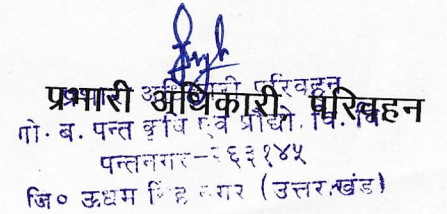 प्रभारी अधिकारी, परिवहन
प्रभारी अधिकारी परिवहन
गो. ब. पन्त कृषि एवं प्रौद्यो. वि. वि.
पन्तनगर-२६३१४५
जि० ऊधम सिंह नगर (उत्तराखंड)